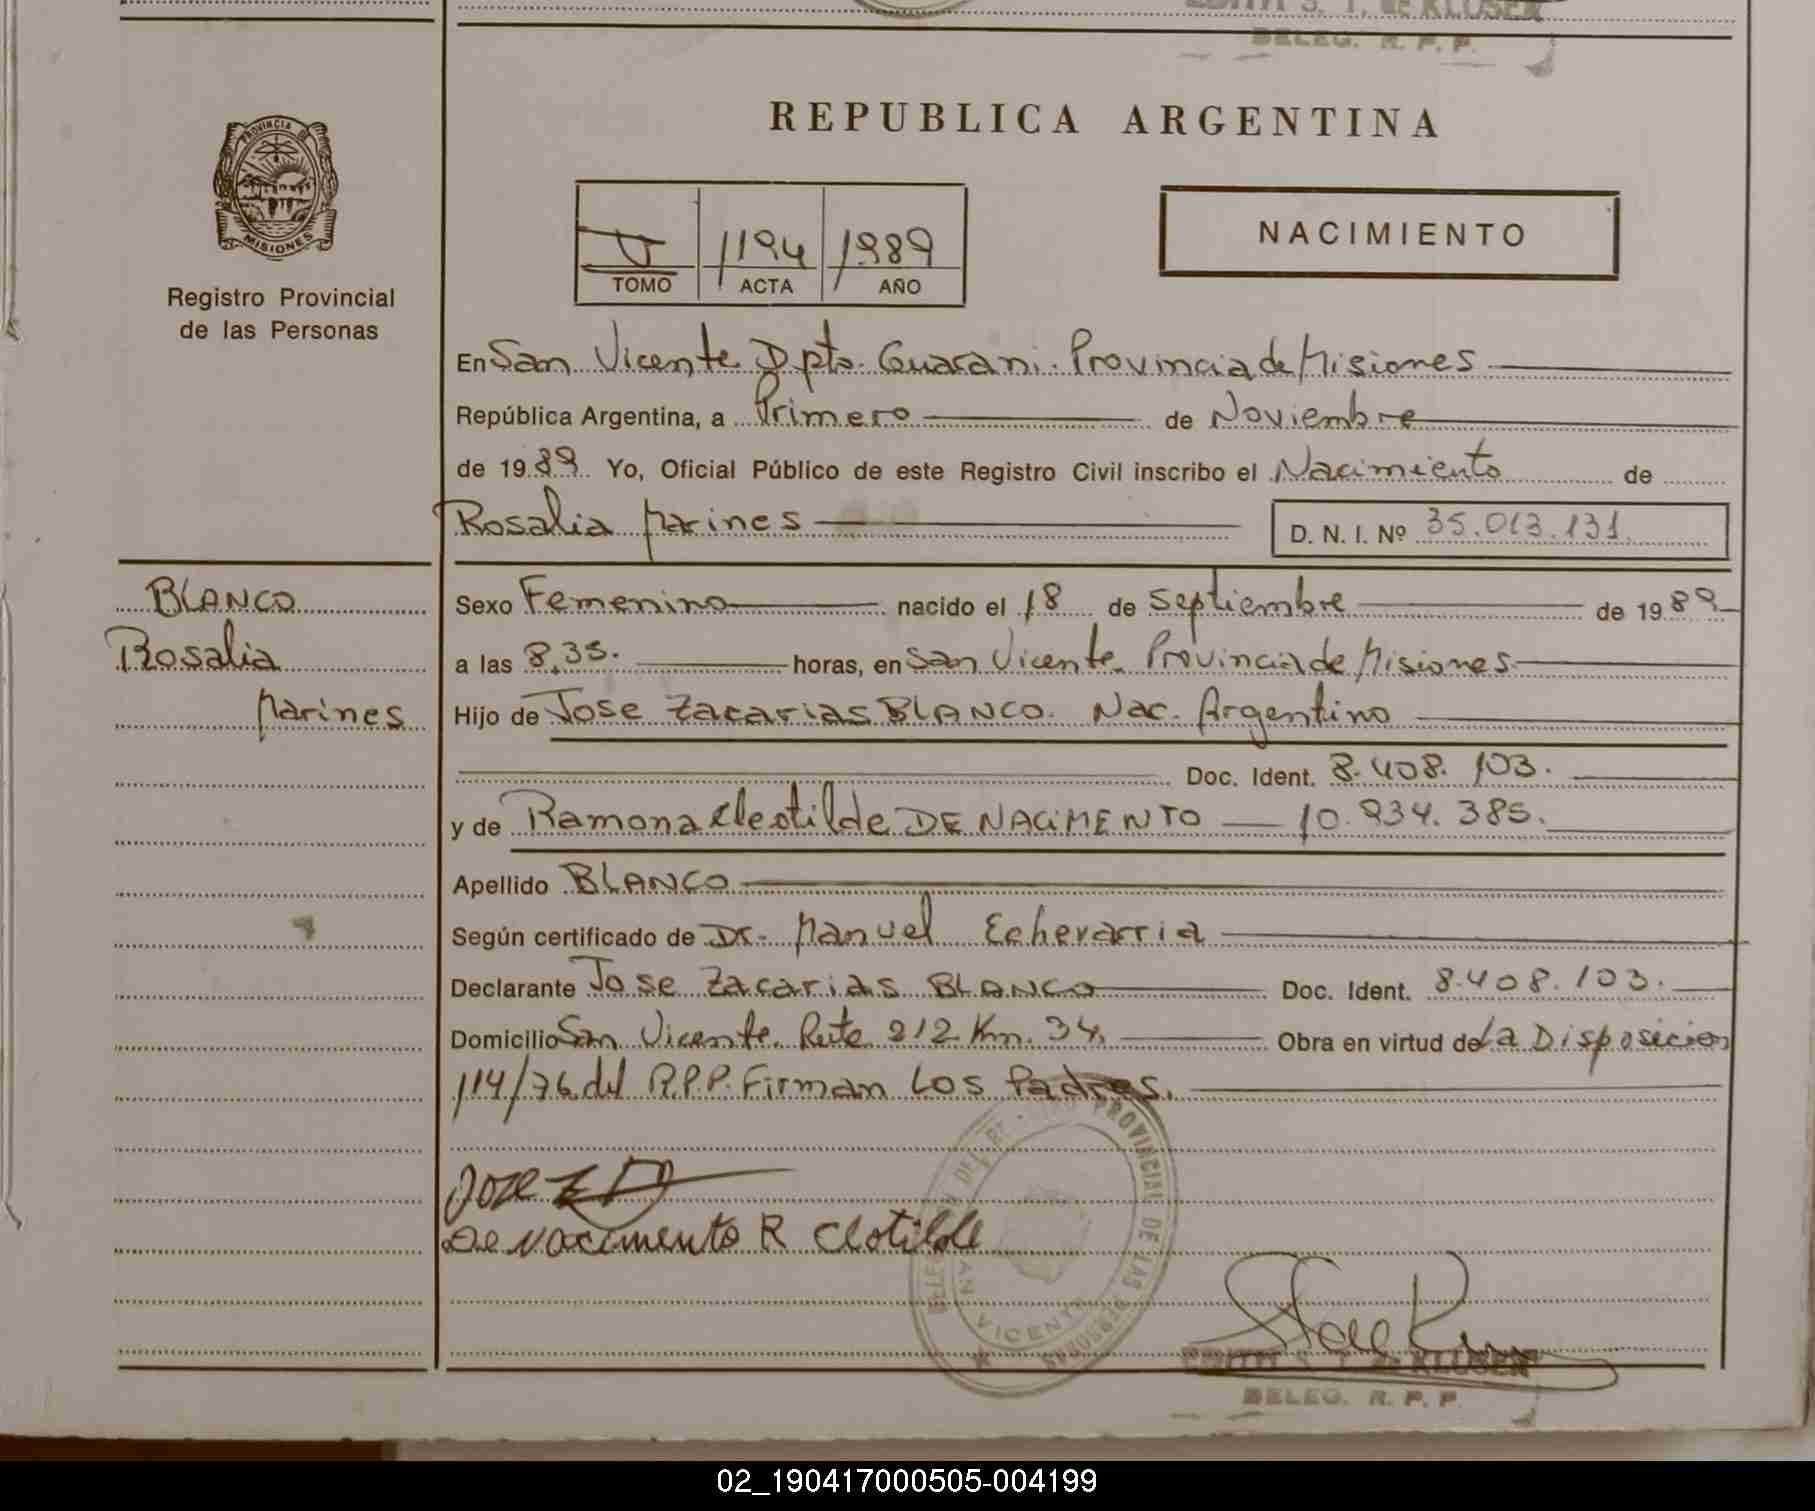 EDITH S. T. de KLUSEN
DELEG. R. P. P.
PROVINCIA DE
MISIONES
Registro Provincial
de las Personas
REPUBLICA ARGENTINA
V 1194 1989
TOMO ACTA AÑO
NACIMIENTO
En San Vicente Dpto. Guarani. Provincia de Misiones
República Argentina, a Primero de Noviembre
de 1989 Yo, Oficial Público de este Registro Civil inscribo el Nacimiento de
Rosalia Marines D. N. I. Nº 35.013.131
BLANCO
Rosalia
Marines
Sexo Femenino nacido el 18 de Septiembre de 1989
a las 8,35. horas, en San Vicente. Provincia de Misiones
Hijo de Jose Zacarias BLANCO. Nac. Argentino
Doc. Ident. 8.408.103.
y de Ramona Cleotilde DE NACIMENTO 10.234.385.
Apellido BLANCO
Según certificado de Dr. Manuel Echevarria
Declarante Jose Zacarias BLANCO Doc. Ident. 8.408.103.
Domicilio San Vicente. Ruta 212 Km. 34. Obra en virtud de La Disposicion
114/76 del R.P.P. Firman Los Padres.
Jose
De Nacimento R Clotilde
PROVINCIAL DE LAS PERSONAS
SAN VICENTE
EDITH S. T. de KLUSEN
DELEG. R. P. P.
02_190417000505-004199